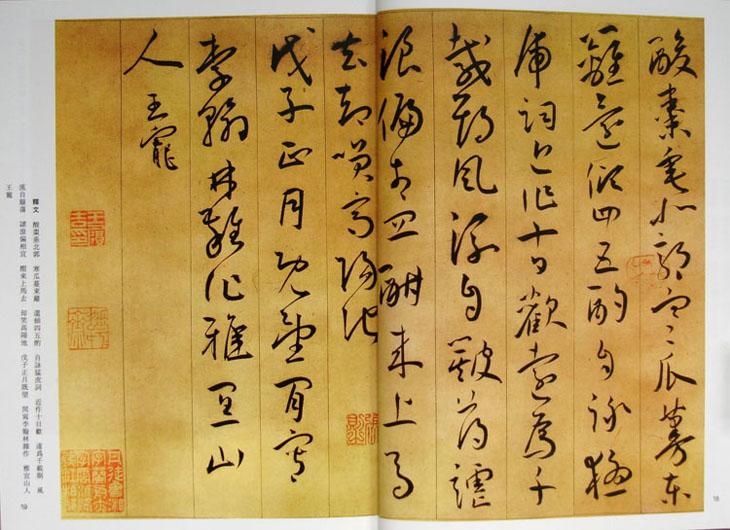 酸棗垂北郭寒瓜蔓東
籬還傾四五酌自詠猛
虎詞近作十日歡遠為千
載期風流自簸蕩謔
浪偏相宜酣來上馬
去却笑高陽池
戊子正月既望間寫
李翰林雜作雅宜山
人 王寵
釋文 酸棗垂北郭 寒瓜蔓東籬 還傾四五酌 自詠猛虎詞 近作十日歡 遠爲千載期 風
流自簸蕩 謔浪偏相宜 酣來上馬去 却笑高陽池 戊子正月既望 閒寫李翰林雜作 雅宜山人
王寵